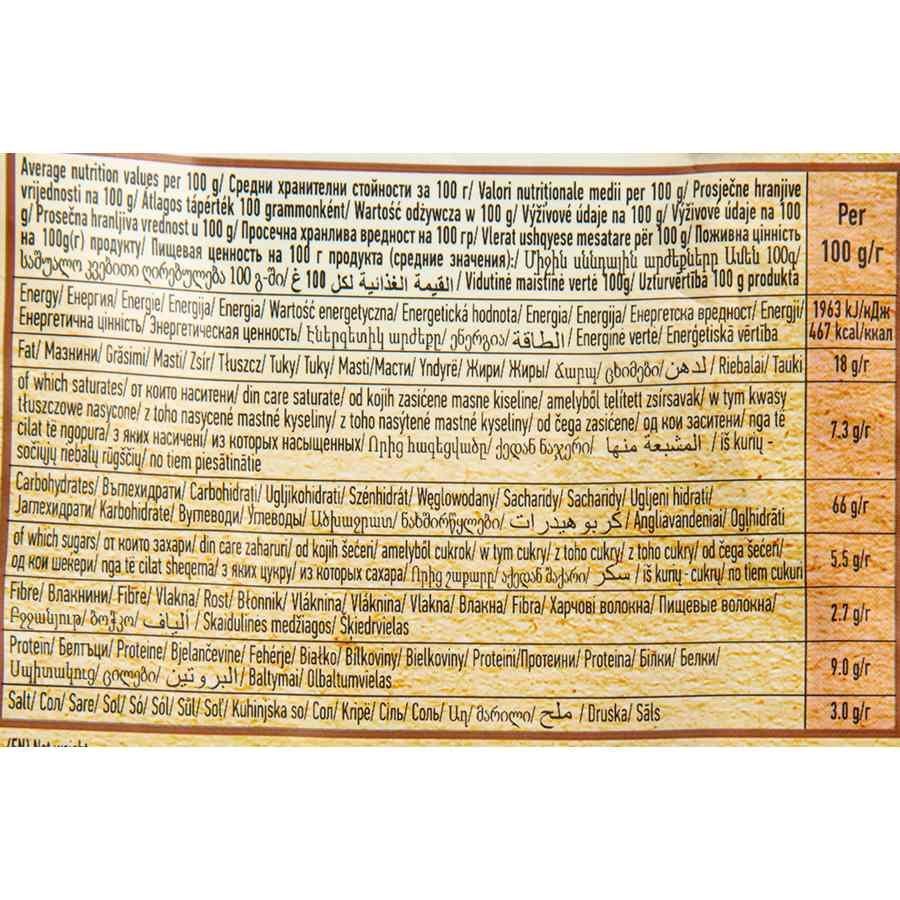 Average nutrition values per 100 g/ Средни хранителни стойности за 100 г/ Valori nutritionale medii per 100 g/ Prosječne hranjive
vrijednosti na 100 g/ Átlagos tápérték 100 grammonként/ Wartość odżywcza w 100 g/ Výživové údaje na 100 g/ Výživové údaje na 100
g/ Prosečna hranljiva vrednost u 100 g/ Просечна хранлива вредност на 100 гр/ Vlerat ushqyese mesatare për 100 g/ Поживна цінність
на 100g(г) продукту/ Пищевая ценность на 100 г продукта (средние значения):/ Միջին սննդային արժեքները Ամեն 100գ/
საშუალო კვებითი ღირებულება 100 გ-ში/ القيمة الغذائية لكل 100 غ / Vidutinė maistinė vertė 100g/ Uzturvērtība 100 g produkta
Per
100 g/г
Energy/ Енергия/ Energie/ Energija/ Energia/ Wartość energetyczna/ Energetická hodnota/ Energia/ Energija/ Енергетска вредност/ Energji/
Енергетична цінність/ Энергетическая ценность/ Էներգետիկ արժեքը/ ენერგია/ الطاقة / Energinė vertė/ Enerģētiskā vērtība
1963 kJ/кДж
467 kcal/ккал
Fat/ Мазнини/ Grăsimi/ Masti/ Zsír/ Tłuszcz/ Tuky/ Tuky/ Masti/Масти/ Yndyrë/ Жири/ Жиры/ Ճարպ/ ცხიმები/ لدهن / Riebalai/ Tauki
18 g/г
of which saturates/ от които наситени/ din care saturate/ od kojih zasićene masne kiseline/ amelyből telített zsírsavak/ w tym kwasy
tłuszczowe nasycone/ z toho nasycené mastné kyseliny/ z toho nasýtené mastné kyseliny/ od čega zasićene/ од кои заситени/ nga të
cilat të ngopura/ з яких насичені/ из которых насыщенных/ Որից հագեցված/ ქედან ნაჯერი/ المشبعة منها / iš kurių -
sočiųjų riebalų rūgščių/ no tiem piesātinātie
7.3 g/г
Carbohydrates/ Въглехидрати/ Carbohidrati/ Ugljikohidrati/ Szénhidrát/ Węglowodany/ Sacharidy/ Sacharidy/ Ugljeni hidrati/
Јаглехидрати/ Karbohidrate/ Вуглеводи/ Углеводы/ Ածխաջրատ/ ნახშირწყლები/ كربو هيدرات / Angliavandeniai/ Ogļhidrāti
66 g/г
of which sugars/ от които захари/ din care zaharuri/ od kojih šećeri/ amelyből cukrok/ w tym cukry/ z toho cukry/ z toho cukry/ od čega šećeri/
од кои шекери/ nga të cilat sheqerna/ з яких цукру/ из которых сахара/ Որից շաքարը/ აქედან შაქარი/ سكر / iš kurių - cukrų/ no tiem cukuri
5.5 g/г
Fibre/ Влакнини/ Fibre/ Vlakna/ Rost/ Błonnik/ Vláknina/ Vláknina/ Vlakna/ Влакна/ Fibra/ Харчові волокна/ Пищевые волокна/
Բջջանյութ/ ბოჭკო/ الياف / Skaidulinės medžiagos/ Šķiedrvielas
2.7 g/г
Protein/ Белтъци/ Proteine/ Bjelančevine/ Fehérje/ Białko/ Bílkoviny/ Bielkoviny/ Proteini/Протеини/ Proteina/ Білки/ Белки/
Սպիտակուց/ ცილები/ البروتين / Baltymai/ Olbaltumvielas
9.0 g/г
Salt/ Сол/ Sare/ Sol/ Só/ Sól/ Sůl/ Soľ/ Kuhinjska so/ Сол/ Kripë/ Сіль/ Соль/ Աղ/ მარილი/ ملح / Druska/ Sāls
3.0 g/г
(EN) Net weight